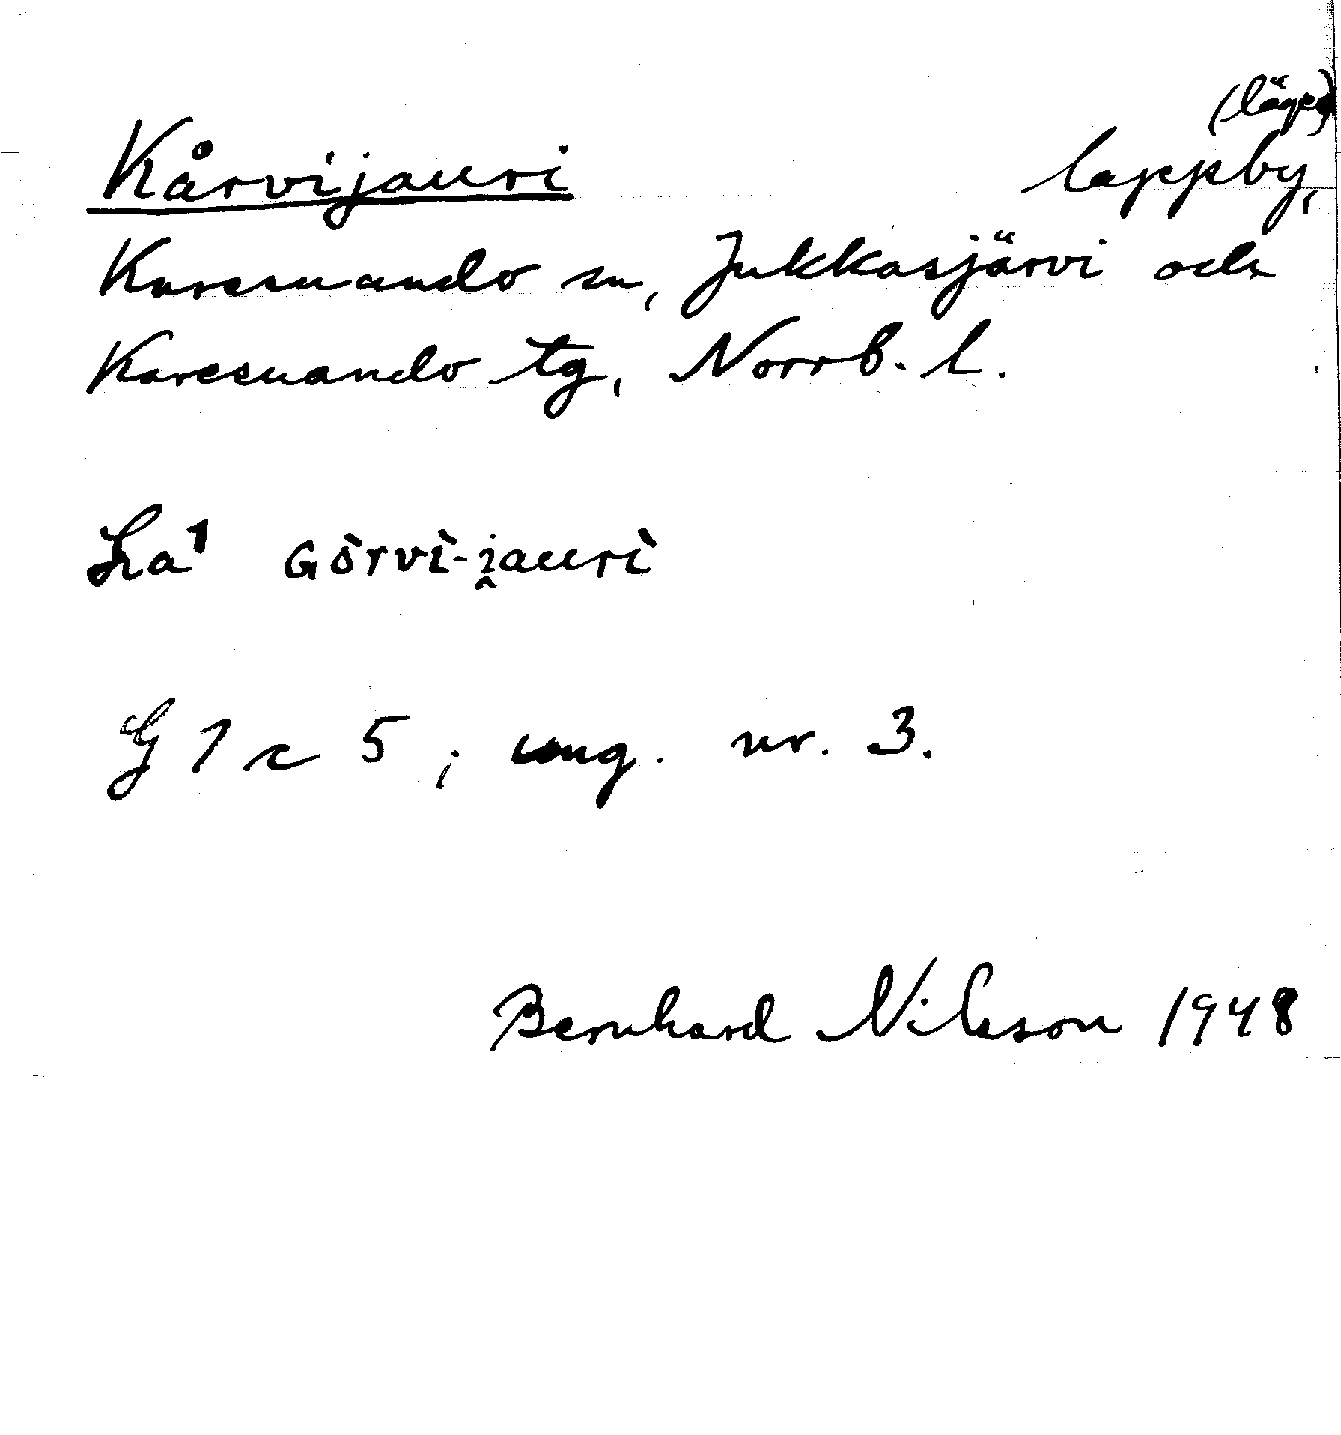 Kårvijauri (läge)
lappby,
Karesuando sn, Jukkasjärvi och
Karesuando tg, Norrb. l.
La¹ Gòrvì-i̭aurì
G 1 c 5 ; ung. nr. 3.
Bernhard Nilsson 1948